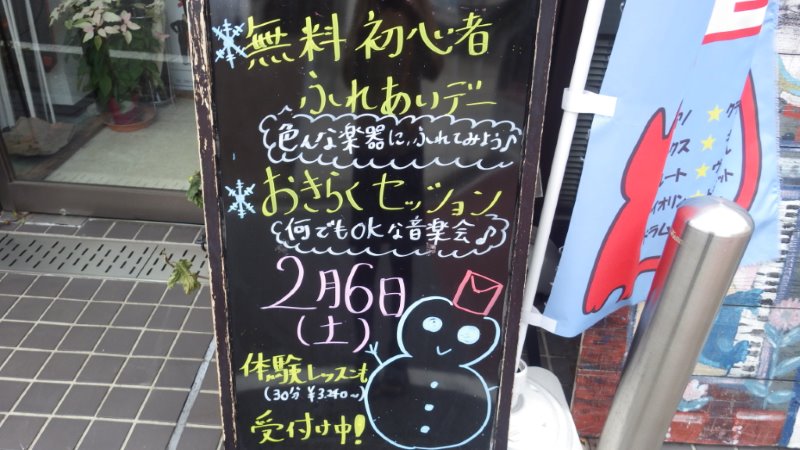 無料初心者
ふれあいデー
色んな楽器に、ふれてみよう♪
おきらくセッション
何でもOKな音楽会♪
2月6日
(土)
体験レッスンも
(30分 ¥3,240～)
受付け中!